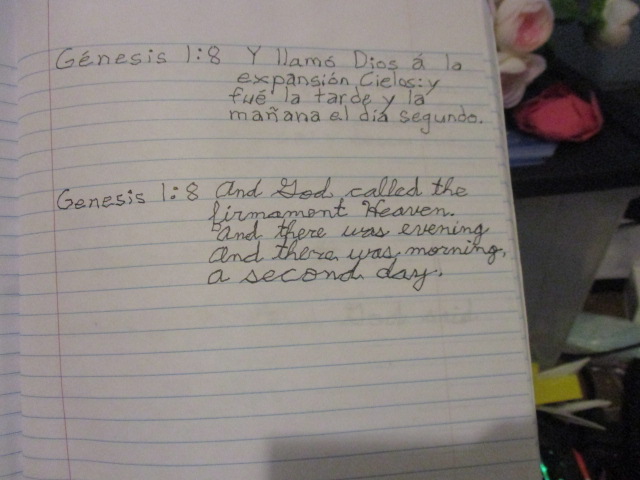 Génesis 1:8 Y llamó Dios á la
expansión Cielos: y
fué la tarde y la
mañana el día segundo.
Genesis 1:8 And God called the
firmament Heaven.
And there was evening
and there was morning,
a second day.